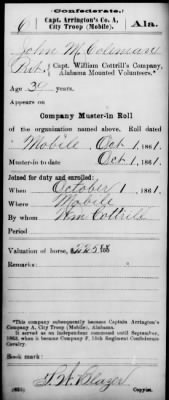 (Confederate.)
6 Capt. Arrington's Co. A, Ala.
City Troop (Mobile).
John M Coleman
Pvt., Capt. William Cottrill's Company,
Alabama Mounted Volunteers.*
Age years.
Appears on
Company Muster-in Roll
of the organization named above. Roll dated
Mobile, Oct 1, 1861.
Muster-in to date Oct 1, 1861.
Joined for duty and enrolled:
When October 1, 1861.
Where Mobile
By whom Wm Cottrill
Period
Valuation of horse,
Remarks:
*This company subsequently became Captain Arrington's
Company A, City Troop (Mobile), Alabama.
It served as an independent command until September,
1863, when it became Company F, 15th Regiment Confederate
Cavalry.
Book mark:
Copyist.